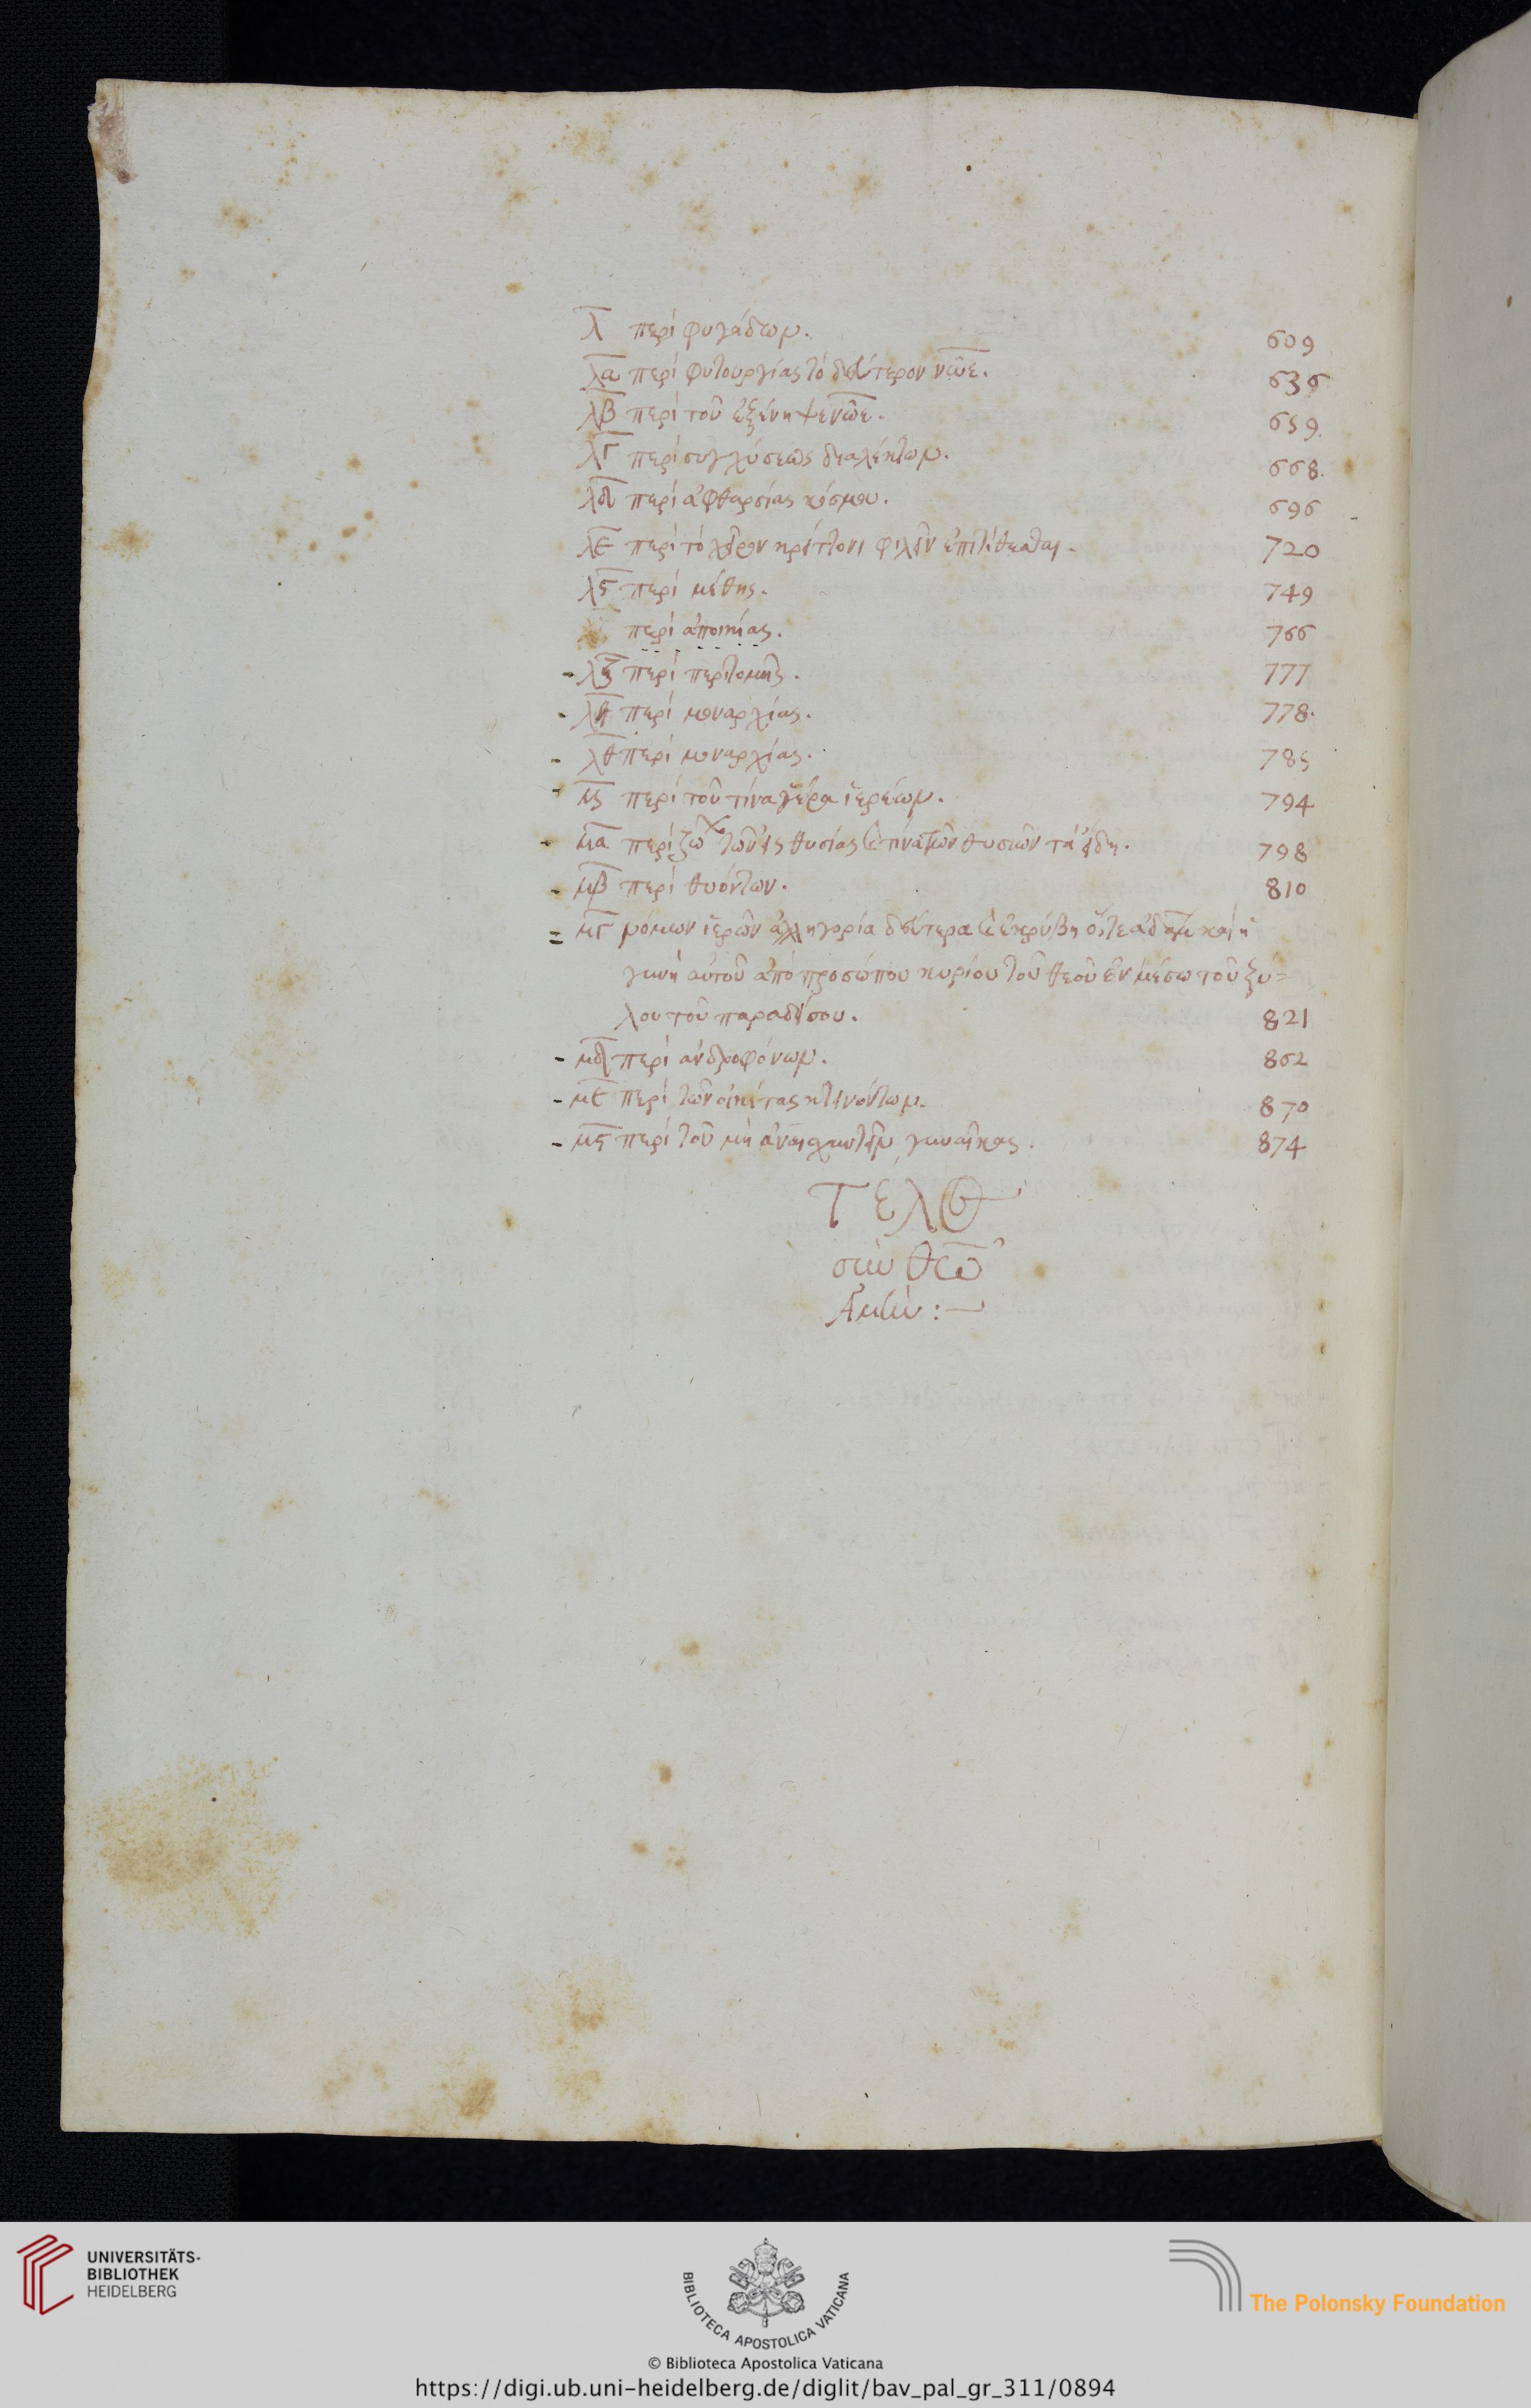 λ περὶ φυγάδων. 609
λα περὶ φυτουργίας τὸ δεύτερον νῶε. 636
λβ περὶ τοῦ ἐξένηψε νῶε. 659.
λγ περὶ συγχύσεως διαλέκτων. 668.
λδ περὶ ἀφθαρσίας κόσμου. 696
λε περὶ τὸ χεῖρον κρείττονι φιλεῖν ἐπιτίθεσθαι. 720
λς περὶ μέθης. 749
περὶ ἀποικίας. 766
- λζ περὶ περιτομῆς. 777
- λη περὶ μοναρχίας. 778.
- λθ περὶ μοναρχίας. 785
- περὶ τοῦ τίνα γέρα ἱερέων. 794
- μα περὶ ζώων τῶν εἰς θυσίας καὶ τίνα τῶν θυσιῶν τὰ εἴδη. 798
- μβ περὶ θυόντων. 810
= μγ νόμων ἱερῶν ἀλληγορία δευτέρα καὶ ἐκρύβη ὅ,τε ἀδὰμ καὶ ἡ
γυνὴ αὐτοῦ ἀπὸ προσώπου κυρίου τοῦ θεοῦ ἐν μέσω τοῦ ξύ=
λου τοῦ παραδείσου. 821
- μδ περὶ ἀνδροφόνων. 862
- με περὶ τῶν οἰκέτας κτεινόντων. 870
- μς περὶ τοῦ μὴ ἀναισχυντεῖν γυναῖκας. 874
Τέλος
σὺν θεῶ
Ἀμήν :—
UNIVERSITÄTS-
BIBLIOTHEK
HEIDELBERG
BIBLIOTECA APOSTOLICA VATICANA
The Polonsky Foundation
© Biblioteca Apostolica Vaticana
https://digi.ub.uni-heidelberg.de/diglit/bav_pal_gr_311/0894